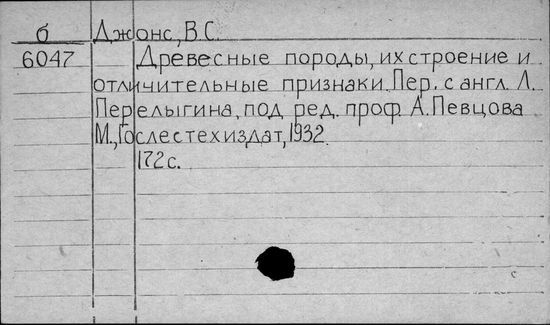 б Джонс, В.С.
6047 Древесные породы, их строение и
отличительные признаки. Пер. с англ. Л.
Перелыгина, под ред. проф. А. Певцова
М., Гослестехиздат, 1932.
172 с.